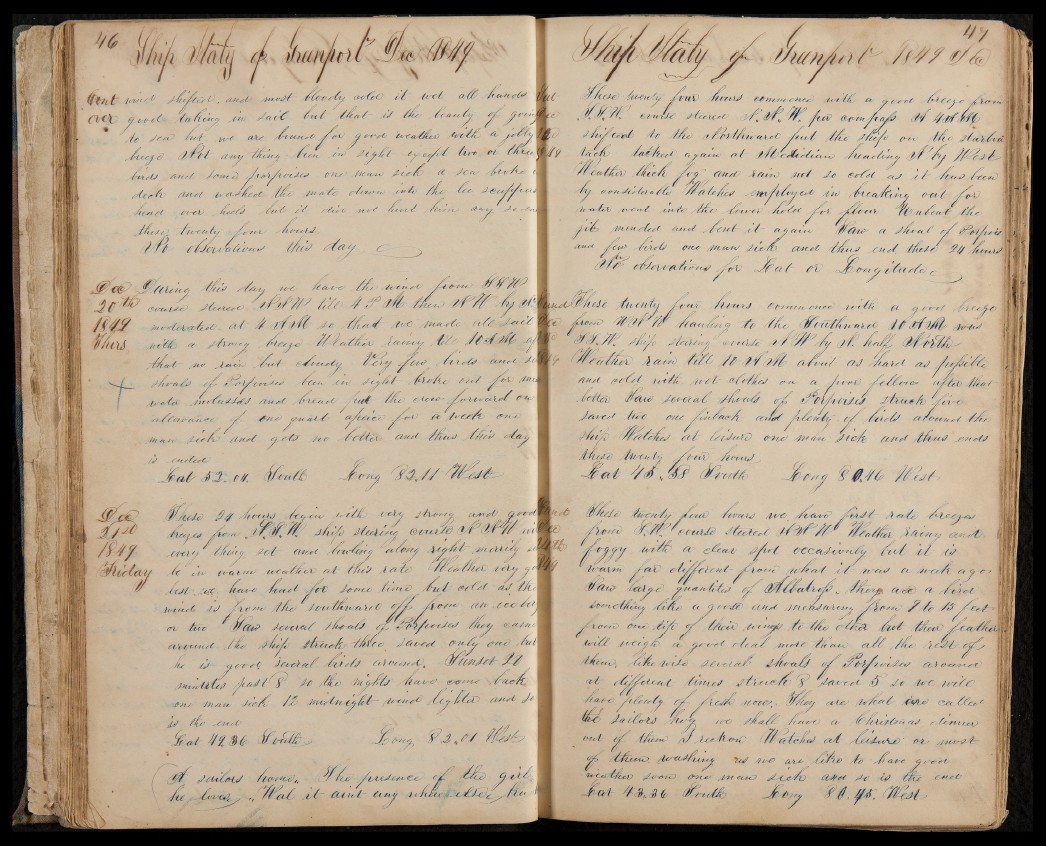 46
Ship Italy of Greenport Dec 1849
Cont wind shifted, and most bloody cold it wet all hands
over good taking in sail but that is the beauty of going
to sea but we are bound for good weather with a jolly
breeze Not any thing been in sight except two or three
birds and some porpoises one man sick a sea broke
deck and washed the mate down into the lee scuppers
head over heels but it did not hurt him any so ends
these twenty four hours
No observations this day
Dec During this day we have the wind from
20th course steered NNW till 4 P M then NW by
1849 moderated at 4 AM so that we made all sail
Thurs with a strong breeze Weather rainy till 10 AM
that no rain but cloudy Very few birds and
shoals of Porpoises been in sight broke out for
water molasses and bread put the crew forward on
allowance of one quart apiece for a week one
man sick and gets no better and thus this day
is ended
Lat 52.04 South Long 82.11 West
Dec These 24 hours begin with very strong and good
21st breezes from S.S.W. ship steering course NNW
1849 every thing set and bowling along right merrily
Friday be in warm weather at this rate Weather very
best we have had for some time but cold as the
wind is from the southward off from an
or two Saw several shoals of Porpoises they came
around the ship struck three saved only one but
he is good several birds around. Sunset 20
minutes past 8 so the nights have come back
one man sick 12 midnight wind lighter and so
is the end
Lat 49.36 South Long 82.01 West
A sailors home. The presence of the girl
he loves. Wal it aint any where else
47
Ship Italy of Greenport 1849 Dec
These twenty four hours commenced with a good breeze from
course steered N.N.W. per compass At 4 AM
shifted to the Northward put the ship on the starboard
tack tacked again at Meridian heading N by West
Weather thick fog and rain not so cold as it has been
by considerable Watches employed in breaking out for
water went into the lower hold for flour Unbent the
jib mended and bent it again Saw a shoal of Porpoises
and few birds one man sick and thus end these 24 hours
No observations for Lat or Longitude
These twenty four hours commence with a good breeze
from WNW hauling to the Southward 10 AM was
S.S.W. ship steering course NW by N half North
Weather rain till 10 AM about as hard as possible
and cold with wet clothes on a poor fellow after that
better Saw several shoals of Porpoises struck five
saved two one finback and plenty of birds around the
ship Watches at leisure one man sick and thus ends
these twenty four hours
Lat 45.58 South Long 80.46 West
These twenty four hours we have first rate breezes
from S.W. course steered NNW Weather rainy and
foggy with a clear spot occasionly but it is
warm far different from what it was a week ago
Saw large quantites of Albatross. they are a bird
something like a goose and measuring from 9 to 15 feet
from one tip of their wings to the other but their feathers
will weigh a good deal more than all the rest of
them, likewise several shoals of Porpoises around
at different times struck 8 saved 5 so we will
have plenty of fresh now. They are what are called
the sailors hog we shall have a Christmas dinner
out of them I reckon Watches at leisure or most
of them washing as we are like to have good
weather soon one man sick and so is the end
Lat 43.36 South Long 80.45. West